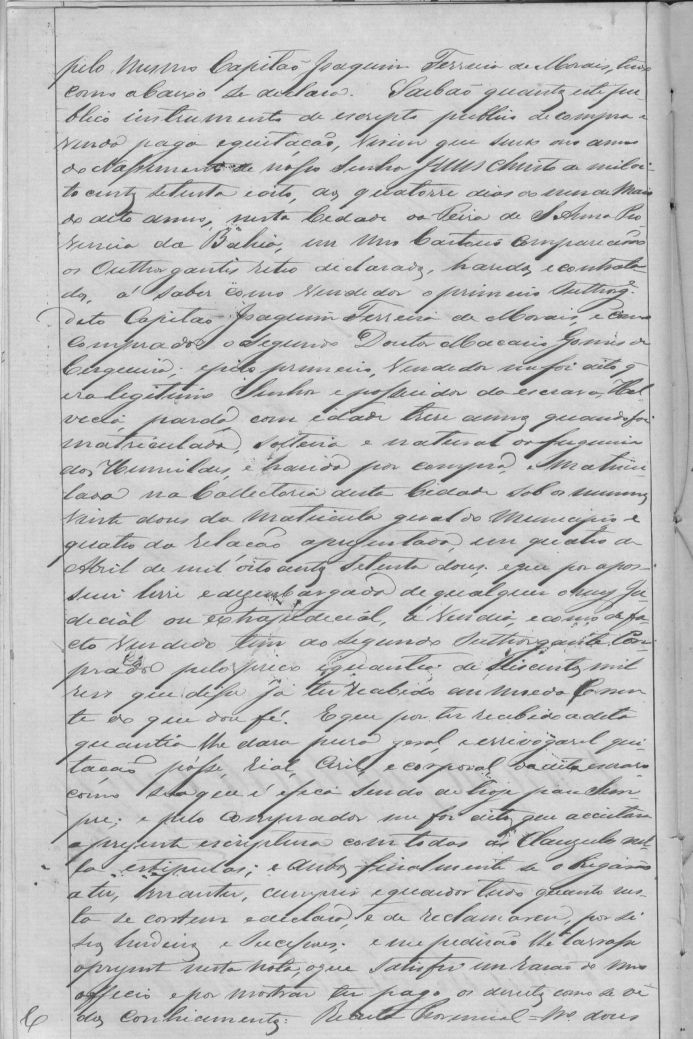 pelo mesmo Capitão Joaquim Ferreira de Morais, tudo
como abaixo se declara. Saibão quantos este pu-
blico instrumento de escripta publica de compra e
venda paga e quitacão, virem que sendo aos annos
do Nascimento de nosso Senhor Jesus Christo de mil oi-
to centos setenta e oito, aos quatorze dias do mes de Maio
do dito anno, nesta Cidade da Feira de S. Anna Pro
vencia da Bahia, em meu Cartorio comparecerão
os Outhorgantes retro declarados, havidos e contrata-
dos, a saber como vendedor o primeiro Outhorg.
dito Capitão Joaquim Ferreira de Morais, e como
comprador o segundo Doutor Macario Gomes de
Cerqueira; e pelo primeiro, vendedor me foi dito, q
era legitimo Senhor e possuidor da escrava Hel
vecia, parda, com edade treze annos quando foi
matriculada, solteira e natural da freguesia
dos Humildes, e havida por compra, e matricu-
lada na Collectoria desta Cidade sob os numeros
vinte dous da matricula geral do Municipio e
quatro da relação apresentada, em quatro de
Abril de mil oito centos setenta dous; e que por a pos-
suir livre e desembargada de qualquer onus Ju-
decial ou extrajudecial, a vendia, e como de fa-
cto vendido tem ao segundo Outhorgante Com-
prador pelo preço e quantia de Seiscentos mil
reis que disse já ter recebido em moeda Corren-
te do que dou fé. E que por ter recebido a dita
quantia lhe dava pura, geral, e errevogavel qui-
tacão, posse, rial, civil, e corporal da dita escrava
como sua que é e fica sendo de hoje para sem
pre; e pelo comprador me foi dito, que acceitava
a presente escriptura com todas as Clausulas nel-
la estipulas; e ambos finalmente se obrigarão
a ter, manter, cumprir e guardar tudo quanto nes-
ta se contem e declara, e de reclamarem, por si
seus herdeiros e sucessores; e me pedirão lhe lavrasse
a presente nesta Nota, o que satisfiz em rasão do meu
officio e por mostrar ter pago os direitos como se vê
dos conhecimentos: Receita Provincial = Nº dous